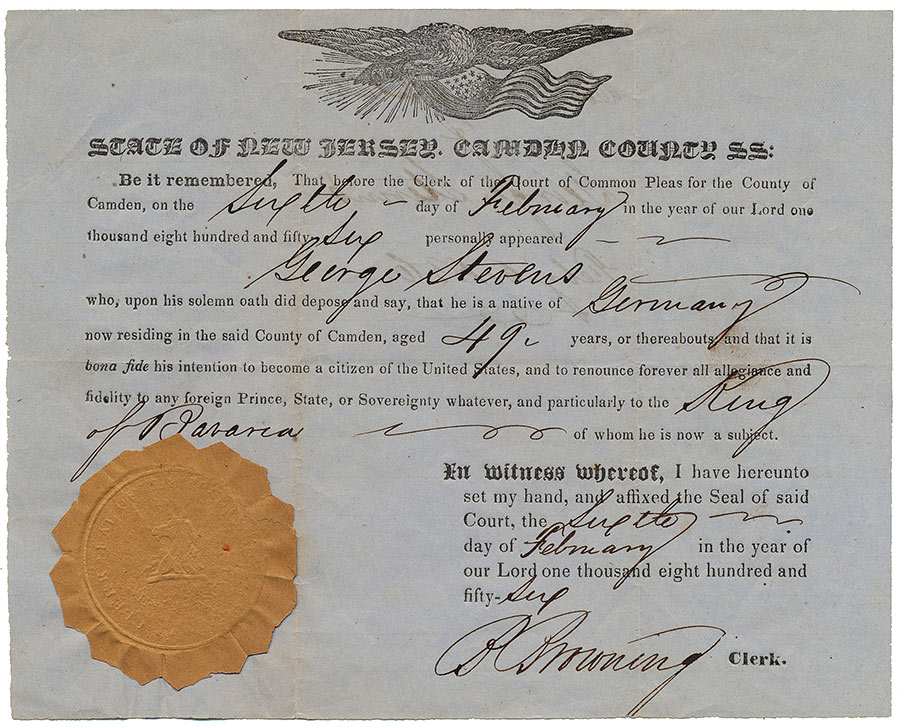 STATE OF NEW JERSEY. CAMDEN COUNTY SS:
Be it remembered, That before the Clerk of the Court of Common Pleas for the County of
Camden, on the Sixth day of February in the year of our Lord one
thousand eight hundred and fifty-Six personally appeared
George Stevens
who, upon his solemn oath did depose and say, that he is a native of Germany
now residing in the said County of Camden, aged 49 years, or thereabouts, and that it is
bona fide his intention to become a citizen of the United States, and to renounce forever all allegiance and
fidelity to any foreign Prince, State, or Sovereignty whatever, and particularly to the King
of Bavaria of whom he is now a subject.
In witness whereof, I have hereunto
set my hand, and affixed the Seal of said
Court, the Sixth
day of February in the year of
our Lord one thousand eight hundred and
fifty-Six
Browning Clerk.